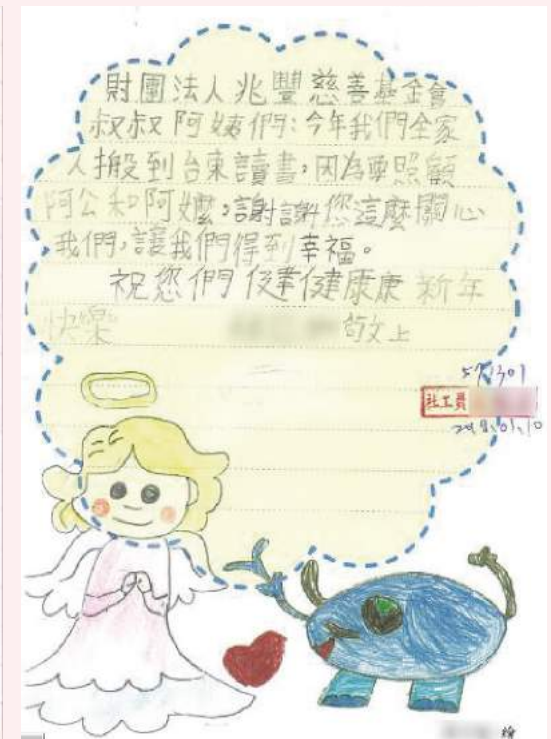 財團法人兆豐慈善基金會
叔叔阿姨們:今年我們全家
人搬到台東讀書,因為要照顧
阿公和阿嬤,謝謝您這麼關心
我們,讓我們得到幸福。
祝您們健健康康 新年
快樂
敬上
社工員
繪